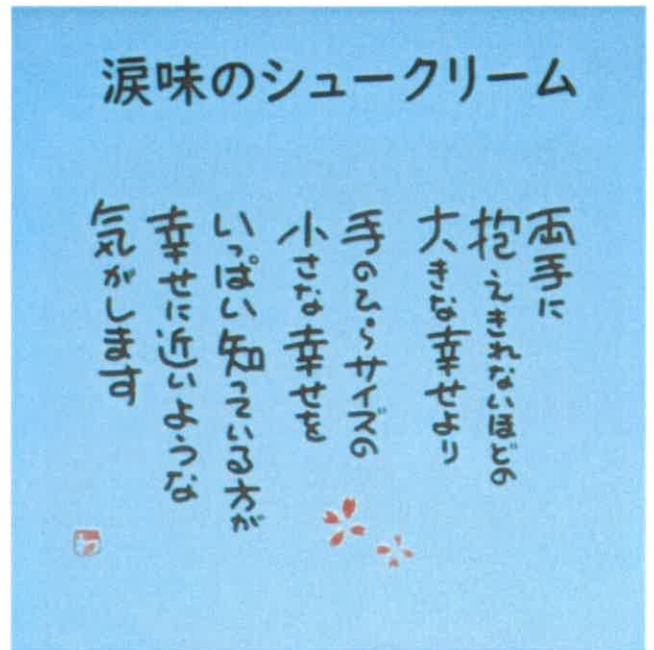 涙味のシュークリーム
両手に
抱えきれないほどの
大きな幸せより
手のひらサイズの
小さな幸せを
いっぱい知っている方が
幸せに近いような
気がします